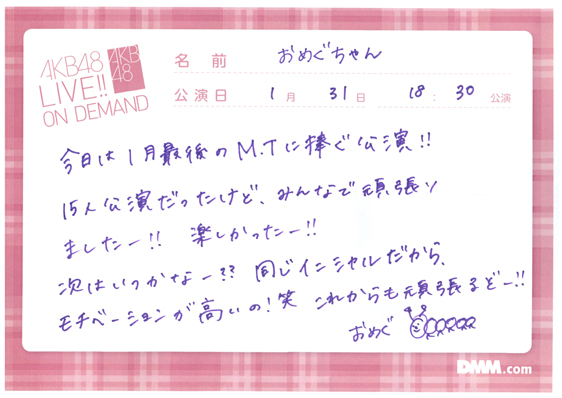 AKB48
LIVE!!
ON DEMAND
AKB
48
名前 おめぐちゃん
公演日 1月 31日 18:30 公演
今日は1月最後のM.Tに捧ぐ公演!!
15人公演だったけど、みんなで頑張り
ましたー!! 楽しかったー!!
次はいつかなー?? 同じイニシャルだから、
モチベーションが高いの!笑 これからも頑張るぞー!!
おめぐ
DMM.com